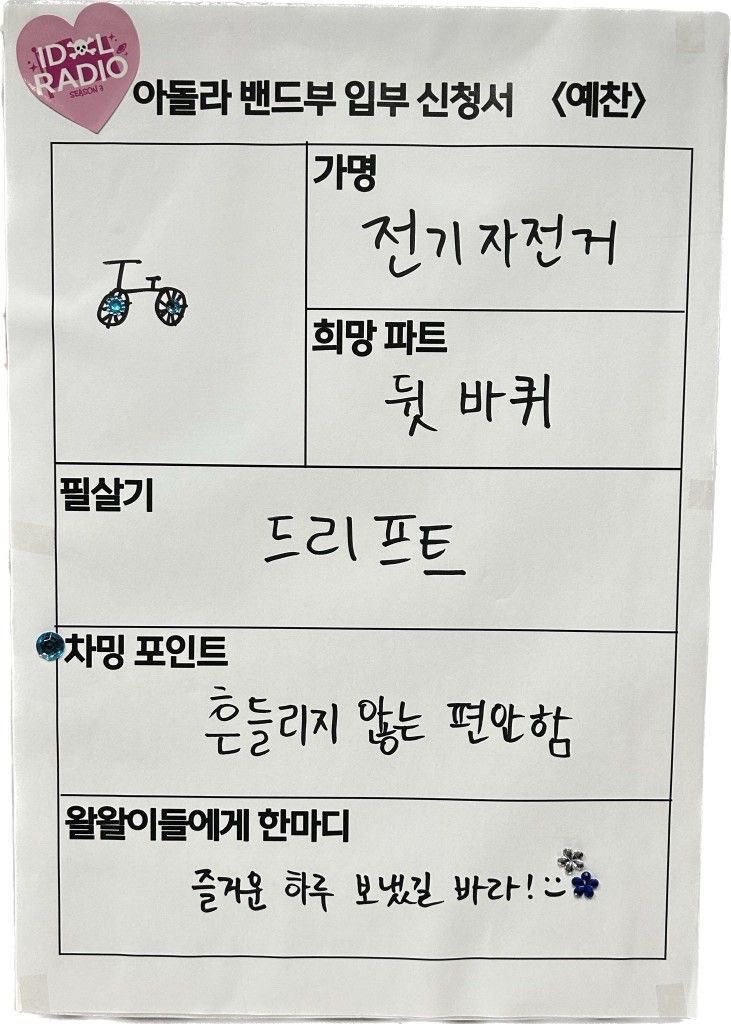 IDOL
RADIO
SEASON 3
아돌라 밴드부 입부 신청서 〈예찬〉
가명
전기자전거
희망 파트
뒷 바퀴
필살기
드리프트
차밍 포인트
흔들리지 않는 편안함
왈왈이들에게 한마디
즐거운 하루 보냈길 바라! :)